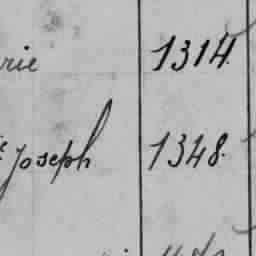 rie 1314.
Joseph 1348.